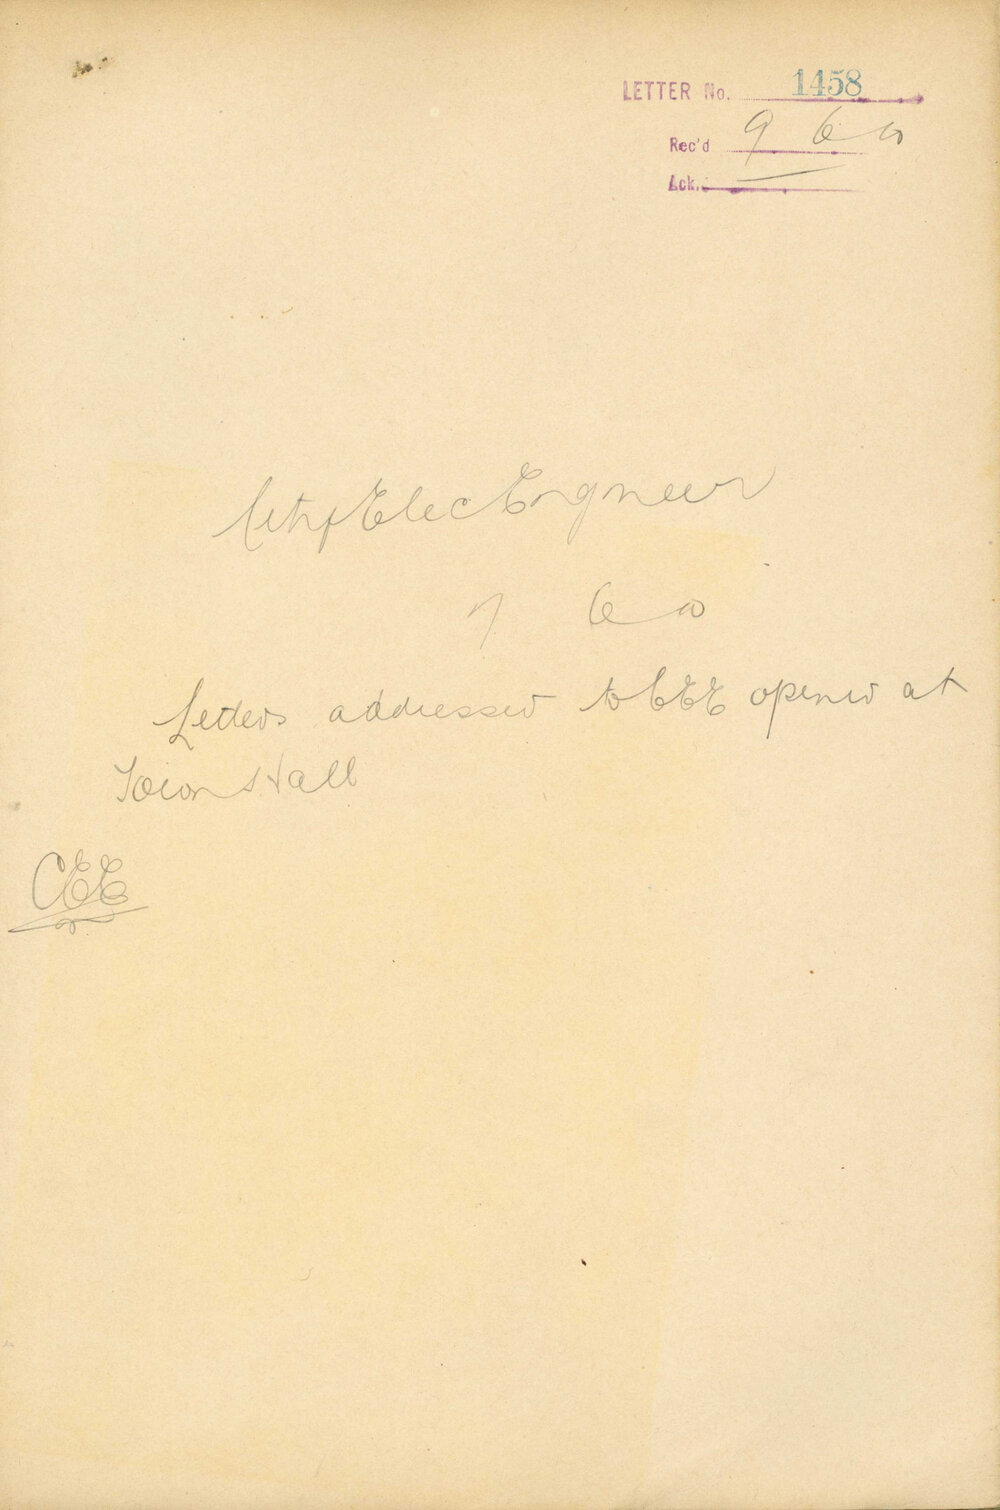 LETTER No. 1458
Rec'd 9 6
Ack.
City Elec Engineer
7 6
Letters addressed to CEE opened at
Town Hall
CEE